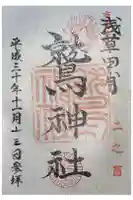 浅草田甫
二之酉
鷲神社
平成三十年十一月十三日参拝